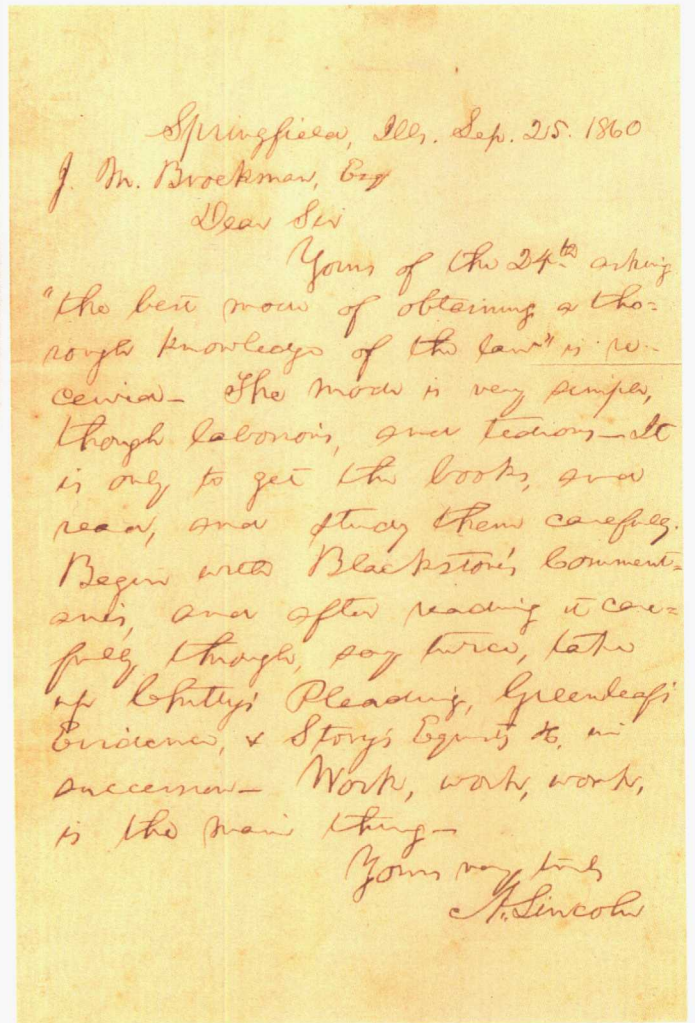 Springfield, Ills. Sep. 25. 1860
J. M. Brockman, Esq
Dear Sir
Yours of the 24th asking
"the best mode of obtaining a tho=
rough knowledge of the law" is re-
ceived— The mode is very simple,
though laborious, and tedious— It
is only to get the books, and
read, and study them carefully.
Begin with Blackstone's Comment=
aries, and after reading it care=
fully through, say twice, take
up Chitty's Pleading, Greenleaf's
Evidence, & Story's Equity &c, in
succession— Work, work, work,
is the main thing—
Yours very truly
A. Lincoln